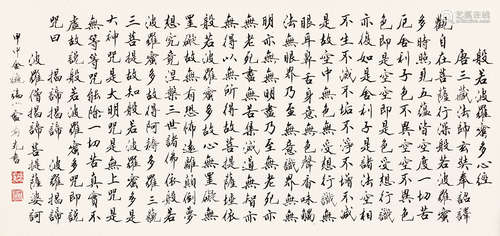 般若波羅蜜多心經
唐三藏法師玄奘奉詔譯
觀自在菩薩行深般若波羅蜜
多時照見五蘊皆空度一切苦
厄舍利子色不異空空不異色
色即是空空即是色受想行識
亦復如是舍利子是諸法空相
不生不滅不垢不淨不增不減
是故空中無色無受想行識無
眼耳鼻舌身意無色聲香味觸
法無眼界乃至無意識界無無
明亦無無明盡乃至無老死亦
無老死盡無苦集滅道無智亦
無得以無所得故菩提薩埵依
般若波羅蜜多故心無罣礙無
罣礙故無有恐怖遠離顛倒夢
想究竟涅槃三世諸佛依般若
波羅蜜多故得阿耨多羅三藐
三菩提故知般若波羅蜜多是
大神咒是大明咒是無上咒是
無等等咒能除一切苦真實不
虛故說般若波羅蜜多咒即說
咒曰 揭諦揭諦 波羅揭諦
波羅僧揭諦菩提薩婆訶
甲申金秋